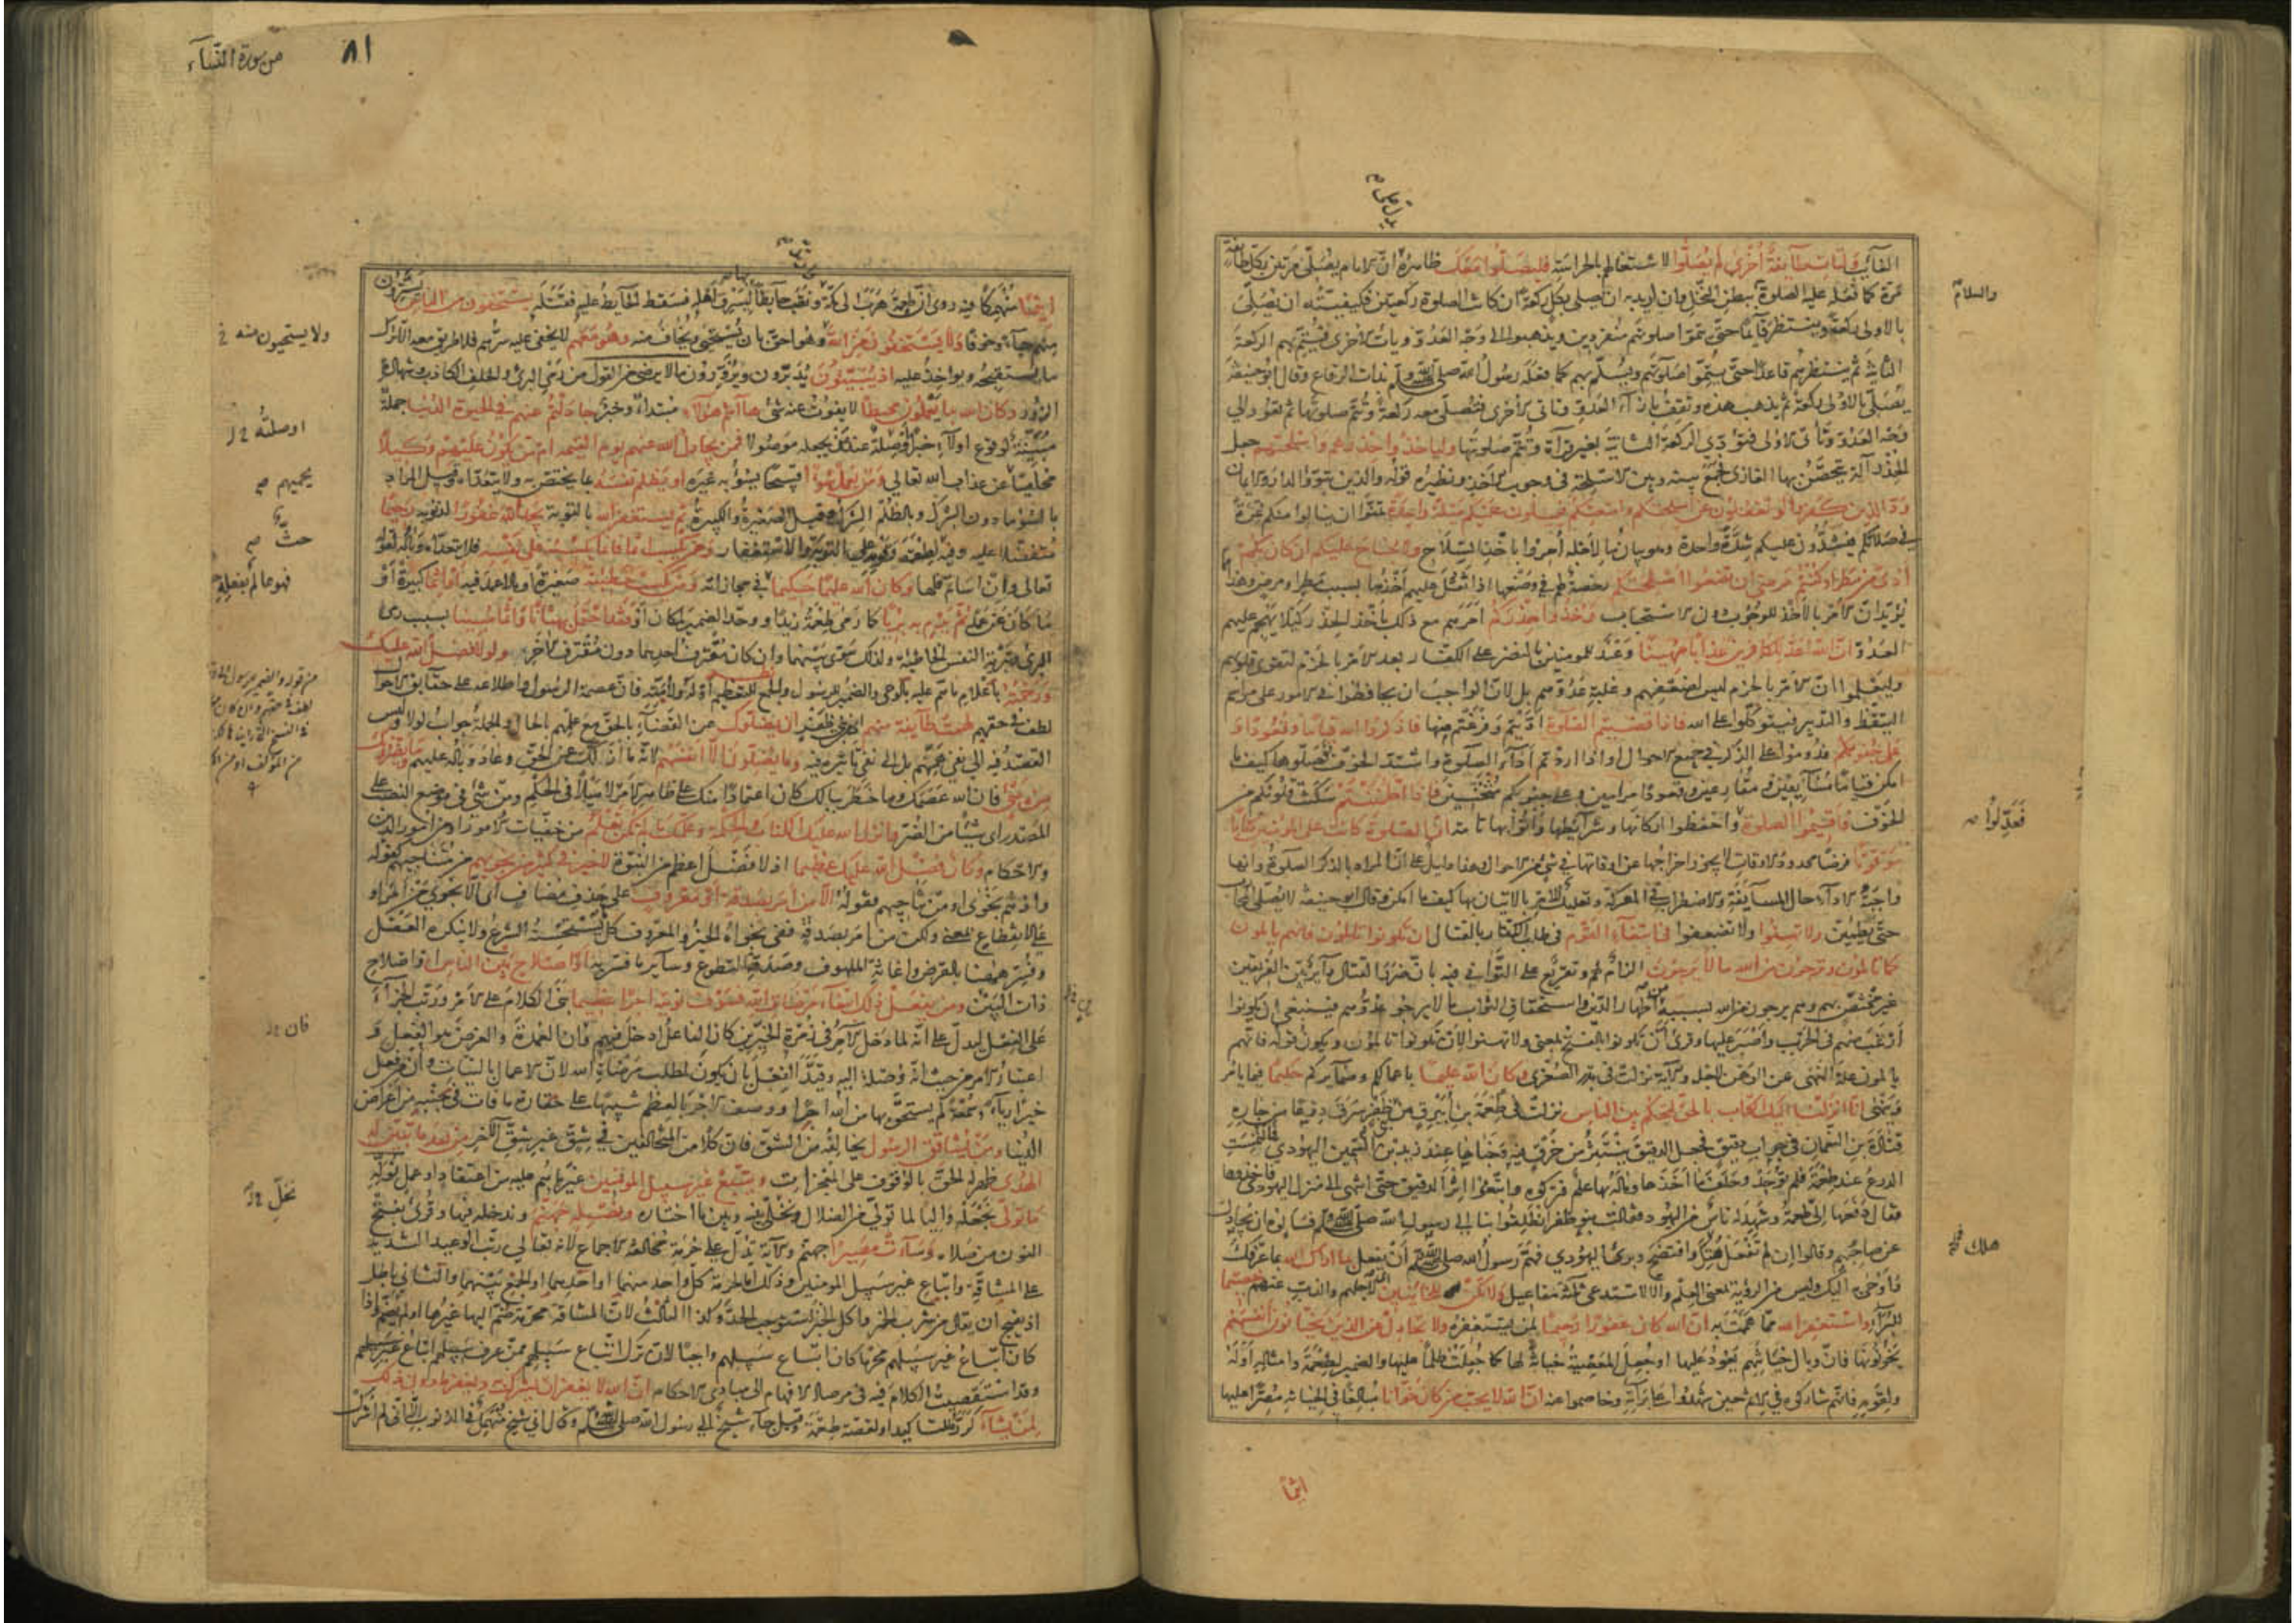 الغائب ولتأت طآئفة أخرى لم يصلّوا لاشتغالهم بالحراسة فليصلّوا معك ظاهره انّ الامام يصلّى مرّتين بكلّ طائفة
مرّة كما فعله عليه الصلوة ببطن النخل وان اريد به ان يصلى بكل ركعة ان كانت الصلوة ركعتين فكيفيّته ان يصلّى
بالاولى ركعة وينتظر قائما حتى يتمّوا صلوتهم منفردين ويذهبوا الى وجه العدوّ ويأت الاخرى فيتمّ بهم الركعة
الثانية ثم ينتظرهم قاعدا حتى يتمّوا صلوتهم ويسلّم بهم كما فعله رسول الله صلى الله عليه وسلم بذات الرقاع وقال ابو حنيفة
يصلّى بالاولى ركعة ثم يذهب هذه وتقف بازآء العدوّ وتاتى الاخرى فتصلّى معه ركعة وتتمّ صلوتها ثم تعود الى
وجه العدوّ وتأتى الاولى فتؤدّى الركعة الثانية بغير قرآءة وتتمّ صلوتها ولياخذوا حذرهم واسلحتهم جعل
الحذر آلة يتحصّن بها الغازى فجمع بينه وبين الاسلحة فى وجوب الاخذ ونظيره قوله والذين تبوّؤا الدار والايمان
ودّ الذين كفروا لو تغفلون عن اسلحتكم وامتعتكم فيميلون عليكم ميلة واحدة تمنّوا ان ينالوا منكم غرّة
فى صلاتكم فيشدّون عليكم شدّة واحدة وهو بيان ما لاجله امروا باخذ السلاح ولا جناح عليكم ان كان بكم
أذى من مطر او كنتم مرضى ان تضعوا اسلحتكم رخصة لهم فى وضعها اذا ثقل عليهم اخذها بسبب مطر او مرض وهذا
يؤيّد انّ الامر بالاخذ للوجوب دون الاستحباب وخذوا حذركم امرهم مع ذلك باخذ الحذر كيلا يهجم عليهم
العدوّ انّ الله اعدّ للكافرين عذابا مهينا وعد للمومنين بالنصر على الكفّار بعد الامر بالحزم لتقوى قلوبهم
وليعلموا انّ الامر بالحزم ليس لضعفهم وغلبة عدوّهم بل لانّ الواجب ان يحافظوا فى الامور على مراسم
التيقّظ والتدبير فيتوكّلوا على الله فاذا قضيتم الصلوة ادّيتم وفرغتم منها فاذكروا الله قياما وقعودا و
على جنوبكم فدوموا على الذكر فى جميع الاحوال او اذا اردتم ادآء الصلوة واشتدّ الخوف فصلّوها كيف ما
امكن قياما مسايفين ومقارعين وقعودا مرامين وعلى جنوبكم مثخنين فاذا اطمأننتم سكنت قلوبكم من
الخوف فاقيموا الصلوة واحفظوا اركانها وشرآئطها وأتوا بها تامّة انّ الصلوة كانت على المومنين كتابا
موقوتا فرضا محدود الاوقات لا يجوز اخراجها عن اوقاتها فى شىء من الاحوال وهذا دليل على انّ المراد بالذكر الصلوة وانها
واجبة الادآء حال المسايفة والاضطراب فى المعركة وتعليل للامر بالاتيان بها كيف ما امكن وقال ابو حنيفة لا يصلّى المحارب
حتى يطمئنّ ولا تهنوا ولا تضعفوا فى ابتغآء القوم فى طلب الكفّار بالقتال ان تكونوا تالمون فانهم يالمون
كما تالمون وترجون من الله ما لا يرجون الزام لهم وتقريع على التوانى فيه بانّ ضرر القتال دآئر بين الفريقين
غير مختصّ بهم وهم يرجون من الله بسببه من اظهار الدين واستحقاق الثواب ما لا يرجو عدوّهم فينبغى ان يكونوا
أرغب منهم فى الحرب واصبر عليها وقرئ أن تكونوا بالفتح بمعنى ولا تهنوا لأن تكونوا تالمون ويكون قوله فانهم
يالمون علة النهى عن الوهن لاجله والآية نزلت فى بدر الصغرى وكان الله عليما باعمالكم وضمآئركم حكيما فيما يامر
وينهى انّا انزلنا اليك الكتاب بالحق لتحكم بين الناس نزلت فى طعمة بن أبيرق من بنى ظفر سرق درعا من جاره
قتادة بن النعمان فى جراب دقيق فجعل الدقيق ينتثر من خرق فيه فخباها عند زيد بن السمين اليهودى فالتمست
الدرع عند طعمة فلم توجد وحلف ما اخذها وما له بها علم فتركوه واتّبعوا اثر الدقيق حتى انتهى الى منزل اليهودى فاخذوها
فقال دفعها الىّ طعمة وشهد له ناس من اليهود فقالت بنو ظفر انطلقوا بنا الى رسول الله صلى الله عليه وسلم فسألوه ان يجادل
عن صاحبهم وقالوا إن لم تفعل هلك وافتضح وبرئ اليهودي فهمّ رسول الله صلى الله عليه وسلم أن يفعل بما اراك الله بما عرّفك
وأوحى اليك وليس من الرؤية بمعنى العلم والا لاستدعى ثلثة مفاعيل ولا تكن للخائنين لاجلهم والذبّ عنهم خصيما
للبرآء واستغفر الله ممّا هممت به انّ الله كان غفورا رحيما لمن يستغفره ولا تجادل عن الذين يختانون أنفسهم
يخونونها فانّ وبال خيانتهم يعود عليها او جعل المعصية خيانة لها كما جعلت ظلما عليها والضمير لطعمة وامثاله او له
ولقومه فانهم شاركوه فى الاثم حين شهدوا على برآءته وخاصموا عنه انّ الله لا يحبّ من كان خوّانا مبالغا فى الخيانة مصرّا عليها
اثيما
والسلام
فعدّلوا
هلك
من سورة النسآء
٨١
اثيما منهمكا فيه روى انّ طعمة هرب الى مكّة ونقب حآئطا ليسرق اهله فسقط الحآيط عليه فقتله يستخفون من الناس يستترون
منهم حيآء وخوفا ولا يستخفون من الله وهو احقّ بان يستحيى ويخاف منه وهو معهم لا يخفى عليه سرّهم فلا طريق معه الّا ترك
ما يستقبحه ويواخذ عليه اذ يبيّتون يدبّرون ويزوّرون ما لا يرضى من القول من رمى البرىء والحلف الكاذب وشهادة
الزور وكان الله بما يعملون محيطا لا يفوت عنه شىء هآ انتم هؤلآء مبتدأ وخبر جادلتم عنهم فى الحيوة الدنيا جملة
مبيّنة لوقوع اولآء خبرا او صلة عند من يجعله موصولا فمن يجادل الله عنهم يوم القيمة ام من يكون عليهم وكيلا
محاميا عن عذاب الله تعالى ومن يعمل سوءا قبيحا يسوء به غيره او يظلم نفسه بما يختصّ به ولا يتعدّاه وقيل المراد
بالسّوء ما دون الشرك وبالظلم الشرك وقيل الصغيرة والكبيرة ثم يستغفر الله بالتوبة يجد الله غفورا لذنوبه رحيما
متفضّلا عليه وفيه حثّ لطعمة وقومه على التوبة والاستغفار ومن يكسب اثما فانما يكسبه على نفسه فلا يتعدّاه وباله لقوله
تعالى وان اسأتم فلها وكان الله عليما حكيما فى مجازاته ومن يكسب خطيئة صغيرة او ما لا عمد فيه أو اثما كبيرة أو
ما كان عن عمد ثم يرم به بريئا كما رمى طعمة زيدا ووحّد الضمير لمكان أو فقد احتمل بهتانا واثما مبينا بسبب رمى
البرىء وتبرئة النفس الخاطئة ولذلك سوّى بينهما وان كان مقترف أحدهما دون مقترف الآخر ولولا فضل الله عليك
ورحمته باعلام ما هم عليه بالوحى والضمير للرسول
لهمّت طآيفة منهم من بنى ظفر أن يضلّوك عن القضآء بالحقّ مع علمهم بالحال والجملة جواب لولا وليس
القصد فيه الى نفى همّهم بل الى نفى تاثيره فيه وما يضلّون الّا أنفسهم لانه ما ازلّك عن الحقّ وعاد وباله عليهم وما يضرّونك
من شىء فان الله عصمك وما خطر ببالك كان اعتمادا منك على ظاهر الامر لا ميلا فى الحكم ومن شىء فى موضع النصب على
المصدر اى شيئا من الضرر وانزل الله عليك الكتاب والحكمة وعلّمك ما لم تكن تعلم من خفيّات الامور او من امور الدين
والاحكام وكان فضل الله عليك عظيما اذ لا فضل اعظم من النبوّة لا خير فى كثير من نجويهم من متناجيهم كقوله
واذ هم نجوى او من تناجيهم فقوله الّا من أمر بصدقة او معروف على حذف مضاف أى الّا نجوى من أمر او
على الانقطاع بمعنى ولكن من أمر بصدقة ففى نجواه الخير والمعروف كل ما يستحسنه الشرع ولا ينكره العقل
وفسّر ههنا بالقرض واغاثة الملهوف وصدقة التطوع وسآير ما فسّر به او اصلاح بين الناس او اصلاح
ذات البين ومن يفعل ذلك ابتغآء مرضات الله فسوف نؤتيه اجرا عظيما بنى الكلام على الامر ورتّب الجزآء
على الفعل ليدلّ على انّه لما دخل الآمر فى زمرة الخيّرين كان الفاعل أدخل فيهم وأن العمدة والغرض هو الفعل و
اعتبار الامر من حيث انه وصلة اليه وقيّد الفعل بان يكون لطلب مرضاة الله لانّ الاعمال بالنيّات وأنّ من فعل
خيرا ريآء وسمعة لم يستحقّ بها من الله اجرا ووصف الاجر بالعظم تنبيها على حقارة ما فات فى جنبه من اعراض
الدنيا ومن يشاقق الرسول يخالفه من الشقّ فانّ كلّا من المتخالفين فى شقّ غير شقّ الآخر من بعد ما تبيّن له
الهدى ظهر له الحقّ بالوقوف على المعجزات ويتّبع غير سبيل المومنين غير ما هم عليه من اعتقاد او عمل نولّه
ما تولّى نجعله واليا لما تولّى من الضلال ونخلّى بينه وبين ما اختاره ونصله جهنّم وندخله فيها وقرئ بفتح
النون من صلاه وسآءت مصيرا جهنّم والآية تدلّ على حرمة مخالفة الاجماع لانه تعالى رتّب الوعيد الشديد
على المشاقّة واتباع غير سبيل المومنين وذلك امّا لحرمة كلّ واحد منهما او احدهما او الجمع بينهما والثانى باطل
اذ يقبح ان يقال من شرب الخمر واكل الخبز استوجب الحدّ وكذا الثالث لانّ المشاقة محرّمة ضمّ اليها غيرها او لم يضمّ واذا
كان اتّباع غير سبيلهم محرّما كان اتّباع سبيلهم واجبا لان ترك اتّباع سبيلهم ممّن عرف سبيلهم اتّباع غير سبيلهم
وقد استقصيت الكلام فيه فى مرصاد الافهام الى مبادى الاحكام انّ الله لا يغفر ان يشرك به ويغفر ما دون ذلك
لمن يشآء كرّره للتاكيد او لقصة طعمة وقيل جآء شيخ الى رسول الله صلى الله عليه وسلم وقال انى شيخ منهمك فى الذنوب الّا انى لم أشرك
ولا يستحيون منه
او صلة
يحميهم
حثّ
فان
نخلّ